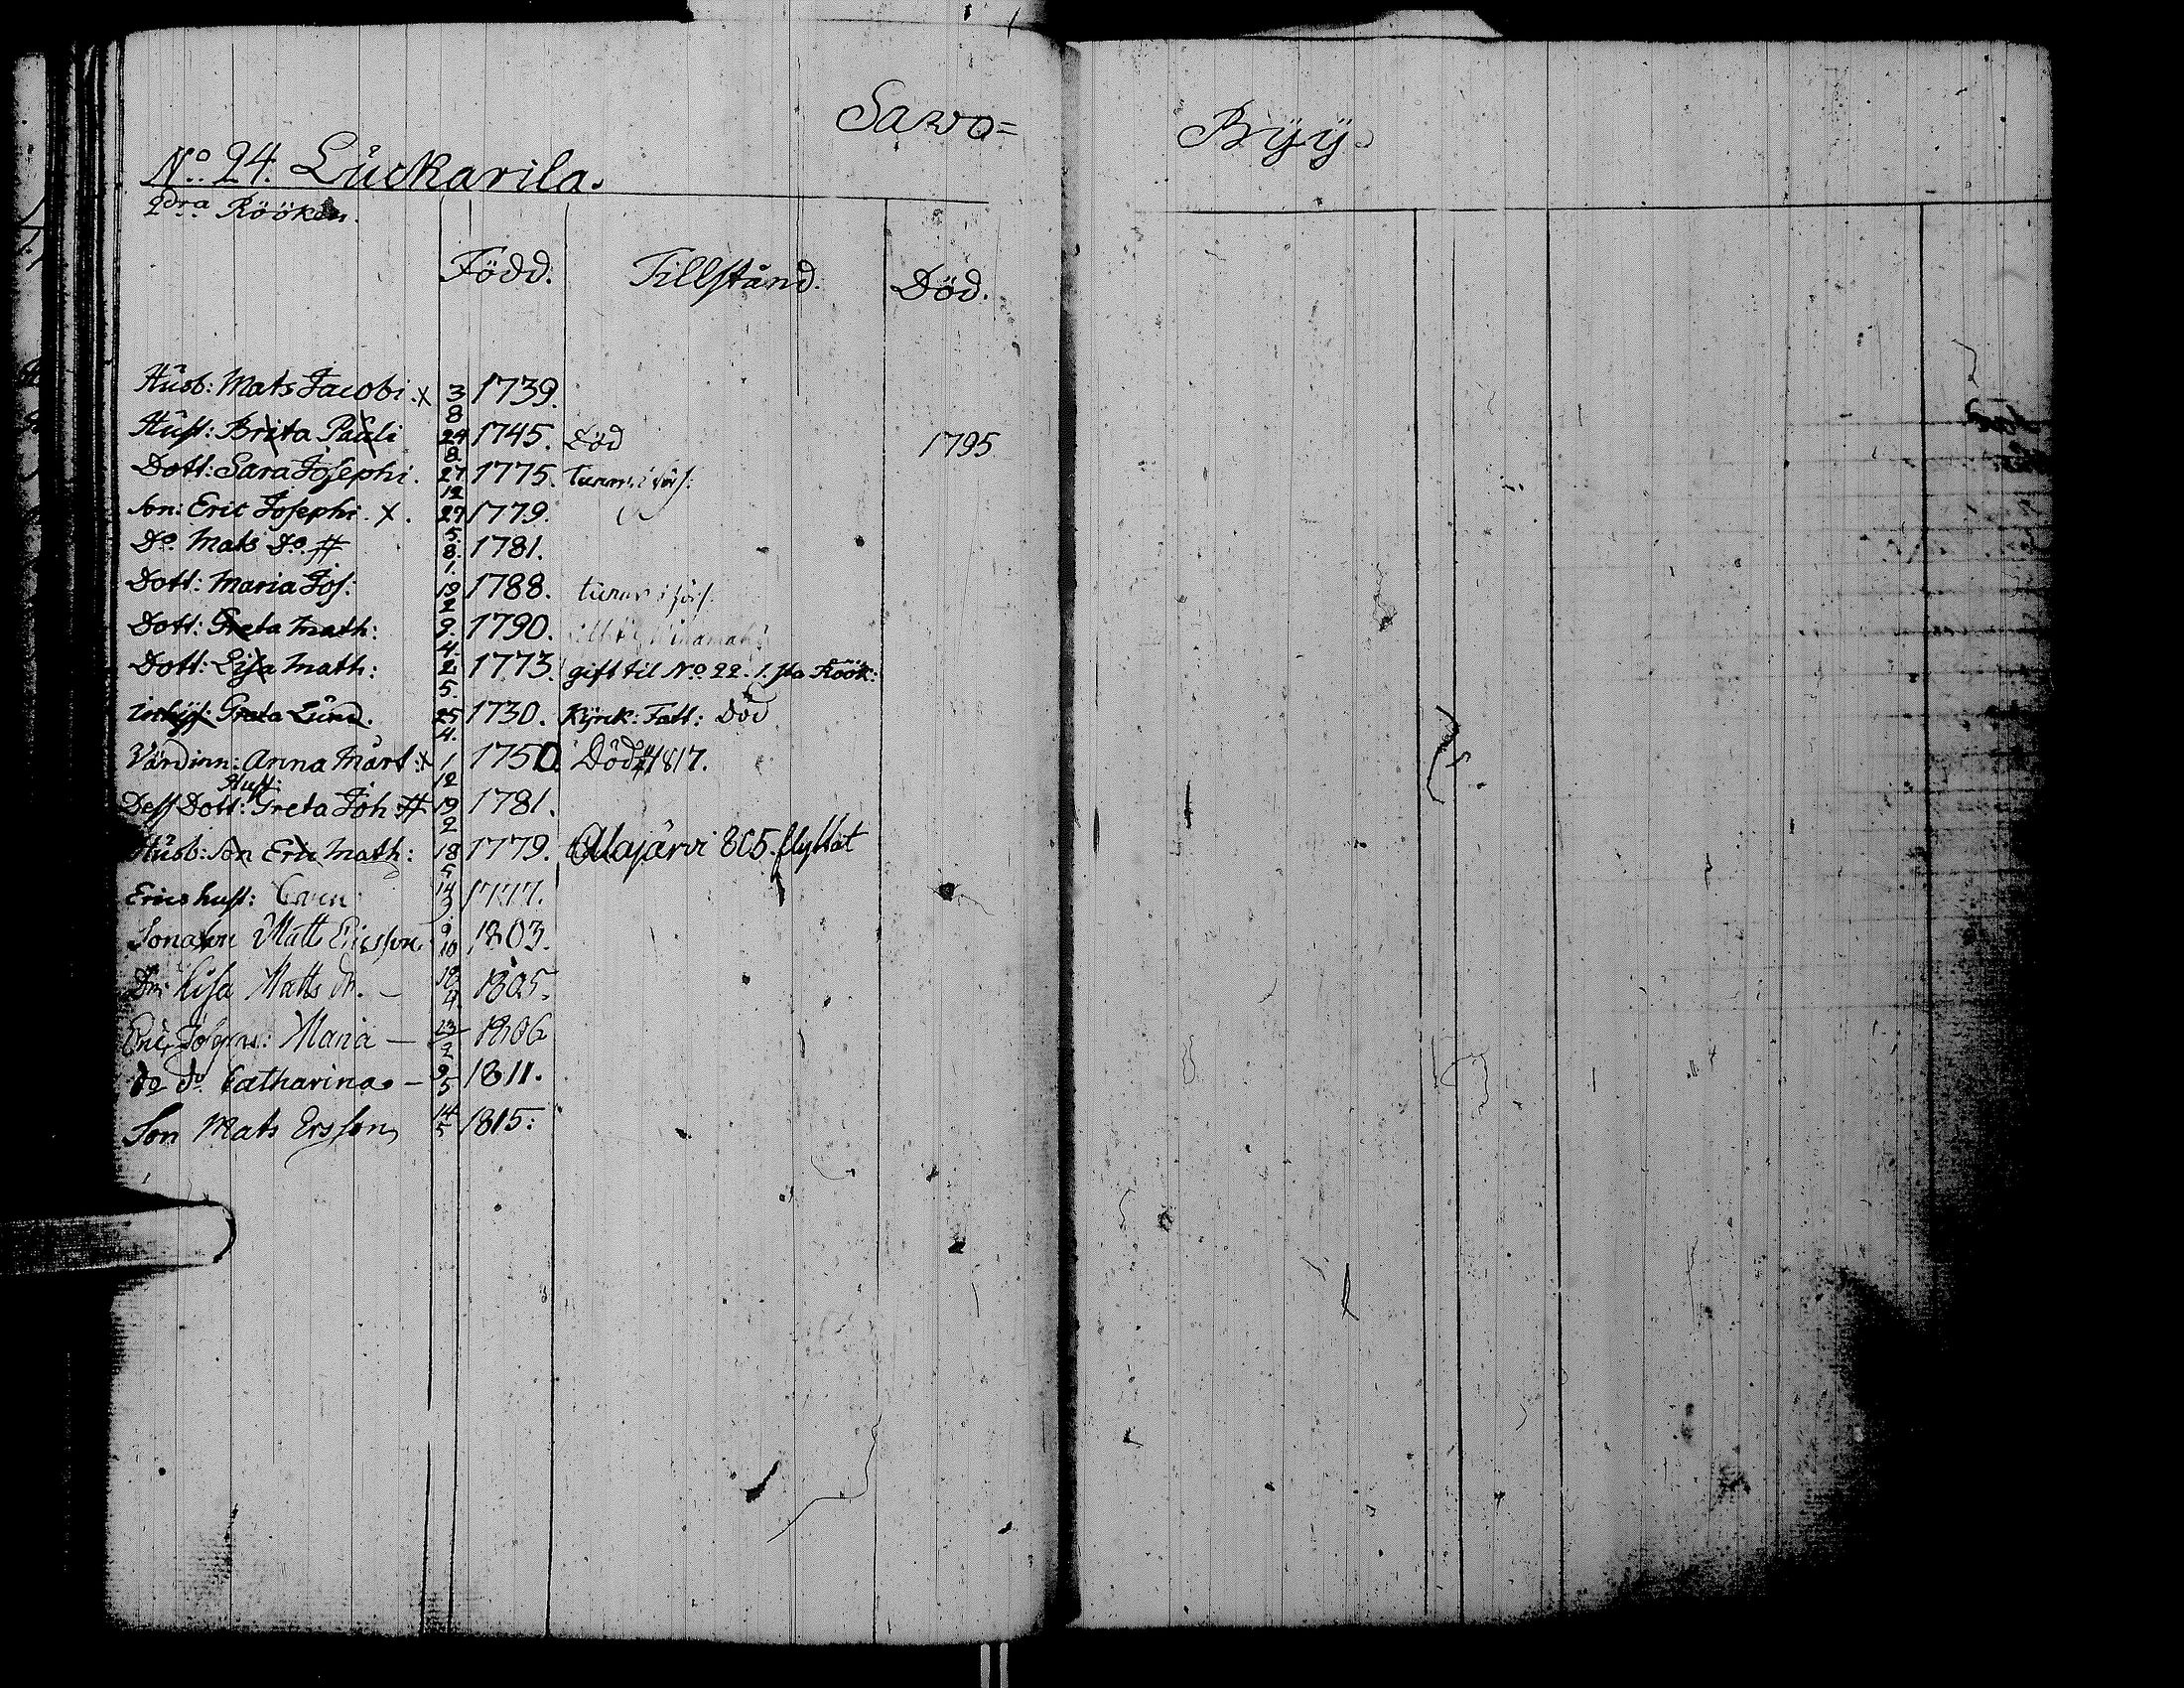 Sawo=
Byÿ.
No. 24. Luckarila.
2dra Rööken.
Född. Tillstånd. Död.
Husb: Mats Jacobi. x 3/8 1739.
Hust: Brita Pauli 24/8 1745. Död 1795
Dott: Sara Josephi. 27/12 1775.
Son: Eric Josephi. x. 27/5 1779.
Do. Mats Do. # 8/1. 1781.
Dott: Maria Jos: 19/2 1788.
Dott: Greta Math: 9/4. 1790.
Dott: Lisa Math: 2/5. 1773. gift til No. 22. 1.sta Röök:
Greta Lund. 25/4. 1730. Kyrck: Fatt: Död
Värdinn: Anna Mårt: x 1/12 1750. Död 1817.
Hust:
Dess Dott: Greta Joh: # 19/2 1781.
Husb: Son Eric Math: 18/5 1779. Alajärvi 805. flyttat
Erics hust: Caren 14/3 1777.
Sonason Matts Ericsson 9/10 1803.
Dr: Lisa Matts dr. — 4 1805.
Eric Josephs: Maria — 23/2 1806
do do. Catharina — 9/5 1811.
Son Mats Ersson 14/5 1815: